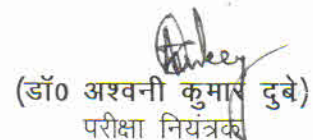 (डॉ0 अश्वनी कुमार दुबे)
परीक्षा नियंत्रक